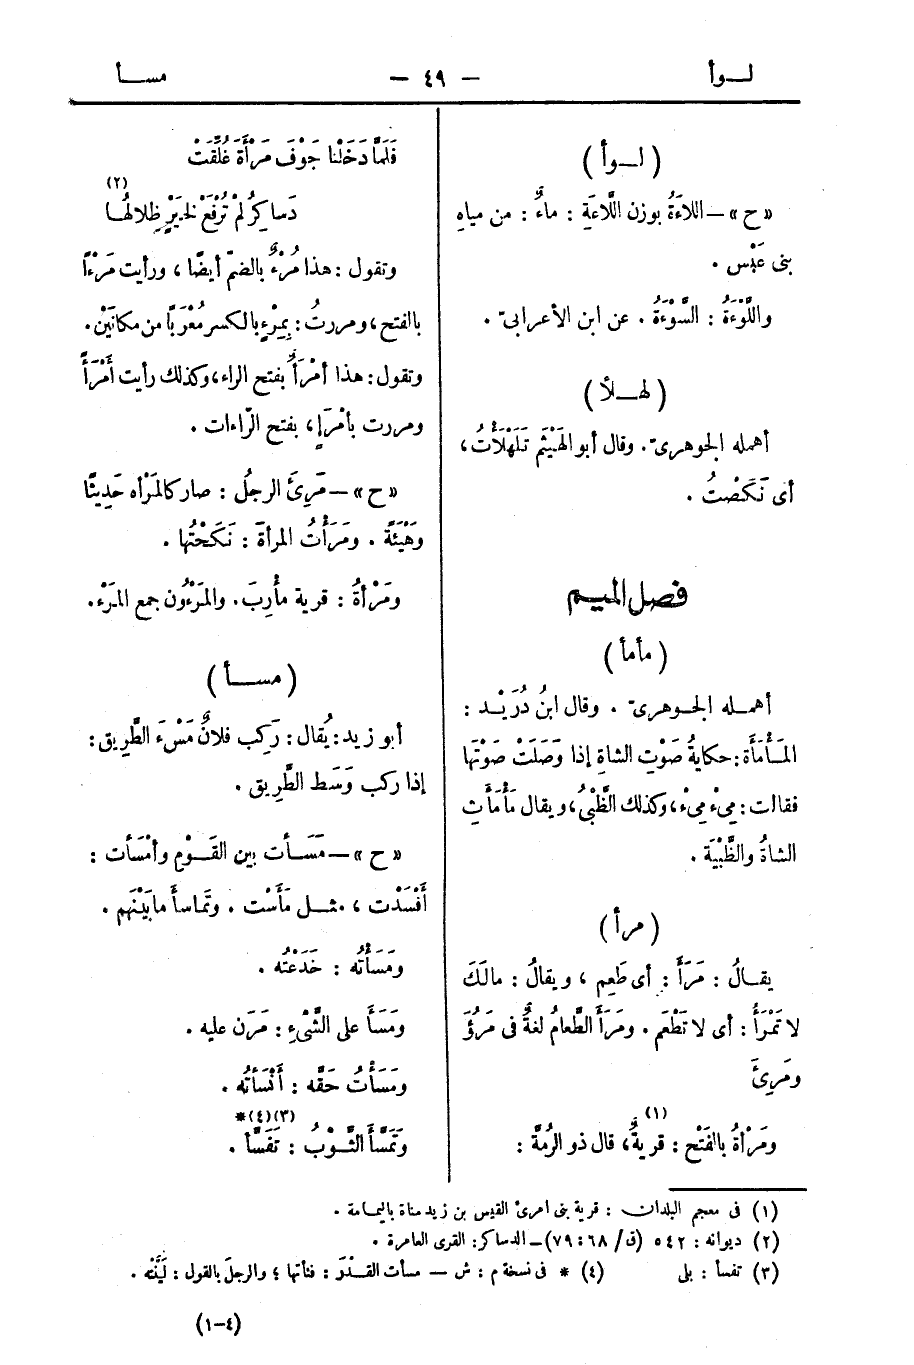 لــوأ — ٤٩ — مســـأ
( لــوأ )
« ح » – اللاءَةُ بوزن اللَّاعَةِ : ماءٌ : من مياهِ
بنى عَبْس .
واللَّوْءَةُ : السَّوْءَةُ . عن ابن الأعرابىّ .
( لهـلأ )
أهمله الجوهرىّ . وقال أبو الهَيْثم تَلَهْلَأْتُ ،
أى نَكَصْتُ .
فصل الميــم
( مأمأ )
أهمــله الجــوهرىّ . وقال ابنُ دُرَيْــد :
المَــأْمَأَة : حكايةُ صَوْتِ الشاةِ إذا وَصَلَتْ صَوْتَها
فقالت : مِىءْ مِىءْ ، وكذلك الظَّبْىُ ، ويقال مَأْمَأَتِ
الشاةُ والظَّبْيَة .
( مرأ )
يقــالُ : مَرَأَ : أى طَعِم ، ويقالُ : مالَكَ
لا تَمْرَأُ : أى لا تَطْعَم . ومَرَأَ الطَّعامُ لغةٌ فى مَرُؤَ
ومَرِئَ
ومَرْأةُ بالفَتْح : قريةٌ (١) ، قال ذو الرُمَّة :
فَلَمَّا دَخَلْنا جَوْفَ مَرْأَةَ غُلِّقَتْ
دَساكِرُ لمْ تُرْفَعْ لخَيْرٍ ظِلالُهَــا (٢)
وتقول : هذا مُرْءٌ بالضمّ أيضًا ، ورأيت مَرْءًا
بالفتح ، ومررتُ : بِمِرْءٍ بالكسر مُعْرَبًا من مكانَيْن .
وتقول : هذا أمْرَأٌ بفتح الراء ، وكذلك رأيت أَمْرَأً
ومررت بأمْرَإٍ ، بفتح الرّاءات .
« ح » – مَرِئَ الرجلُ : صار كالمَرْأه حَدِيثًا
وهَيْئَةً . ومَرَأْتُ المرأةَ : نَكَحْتُها .
ومَرْأةُ : قرية مأْرِبَ . والمَرْءُون جمع المَرْء .
( مســـأ )
أبو زيد : يُقال : رَكِب فلانٌ مَسْءَ الطَّرِيق :
إذا ركب وَسَط الطَّرِيق .
« ح » – مَسَــأت بين القَــوْمِ وأمْسَأت :
أَفْسَدْت ، مثــل مَأَسْت . وتَماسأَ مابَيْنَهم .
ومَسَأتُه : خَدَعْتُه .
ومَسَأَ على الشَّىْءِ : مَرَن عليه .
ومَسَأْتُ حَقَّه : أَنْسَأْتُه .
وتَمَسَّأَ الثَّــوْبُ : تَفَسَّأَ (٣)(٤)* .
(١) فى معجم البلدان : قرية بنى امرئ القيس بن زيد مناة باليمامة .
(٢) ديوانه : ٥٤٢ (ق/ ٦٨ : ٧٩) – الدساكر : القرى العامرة .
(٣) تفسأ : بلى (٤) * فى نسخة م : ش – مسأت القــدْرَ : فثأتها ؛ والرجلَ بالقول : لَيَّنْته .
(٤–١)